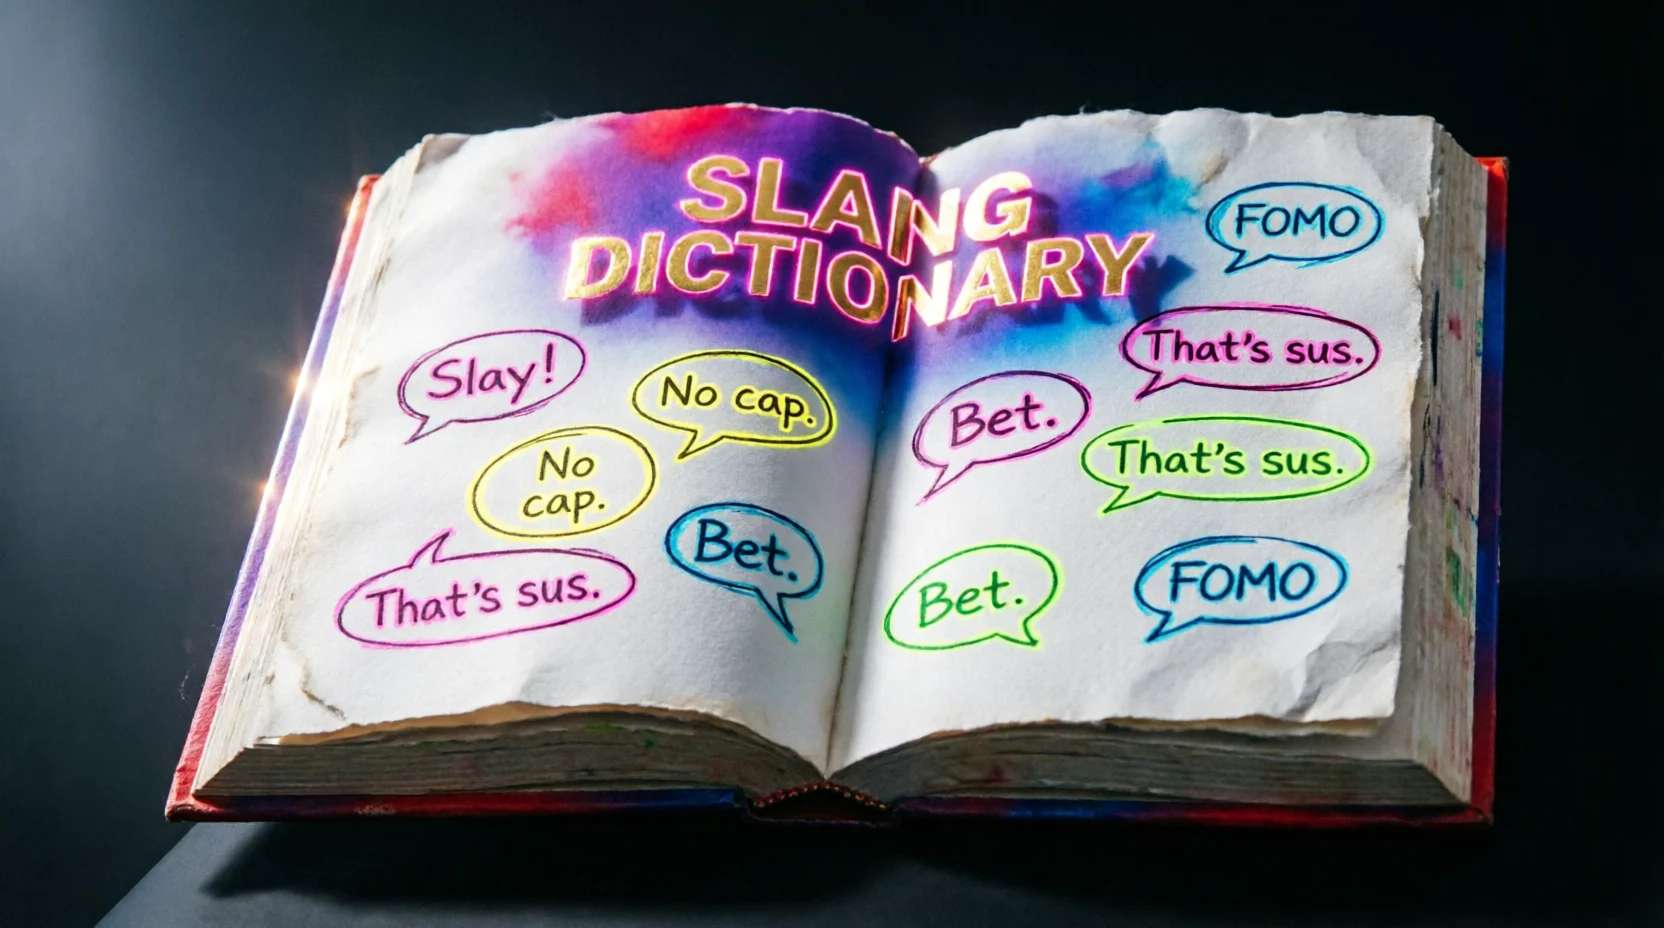 SLANG
DICTIONARY
Slay!
No cap.
No
cap.
Bet.
That's sus.
FOMO
That's sus.
Bet.
That's sus.
Bet.
FOMO